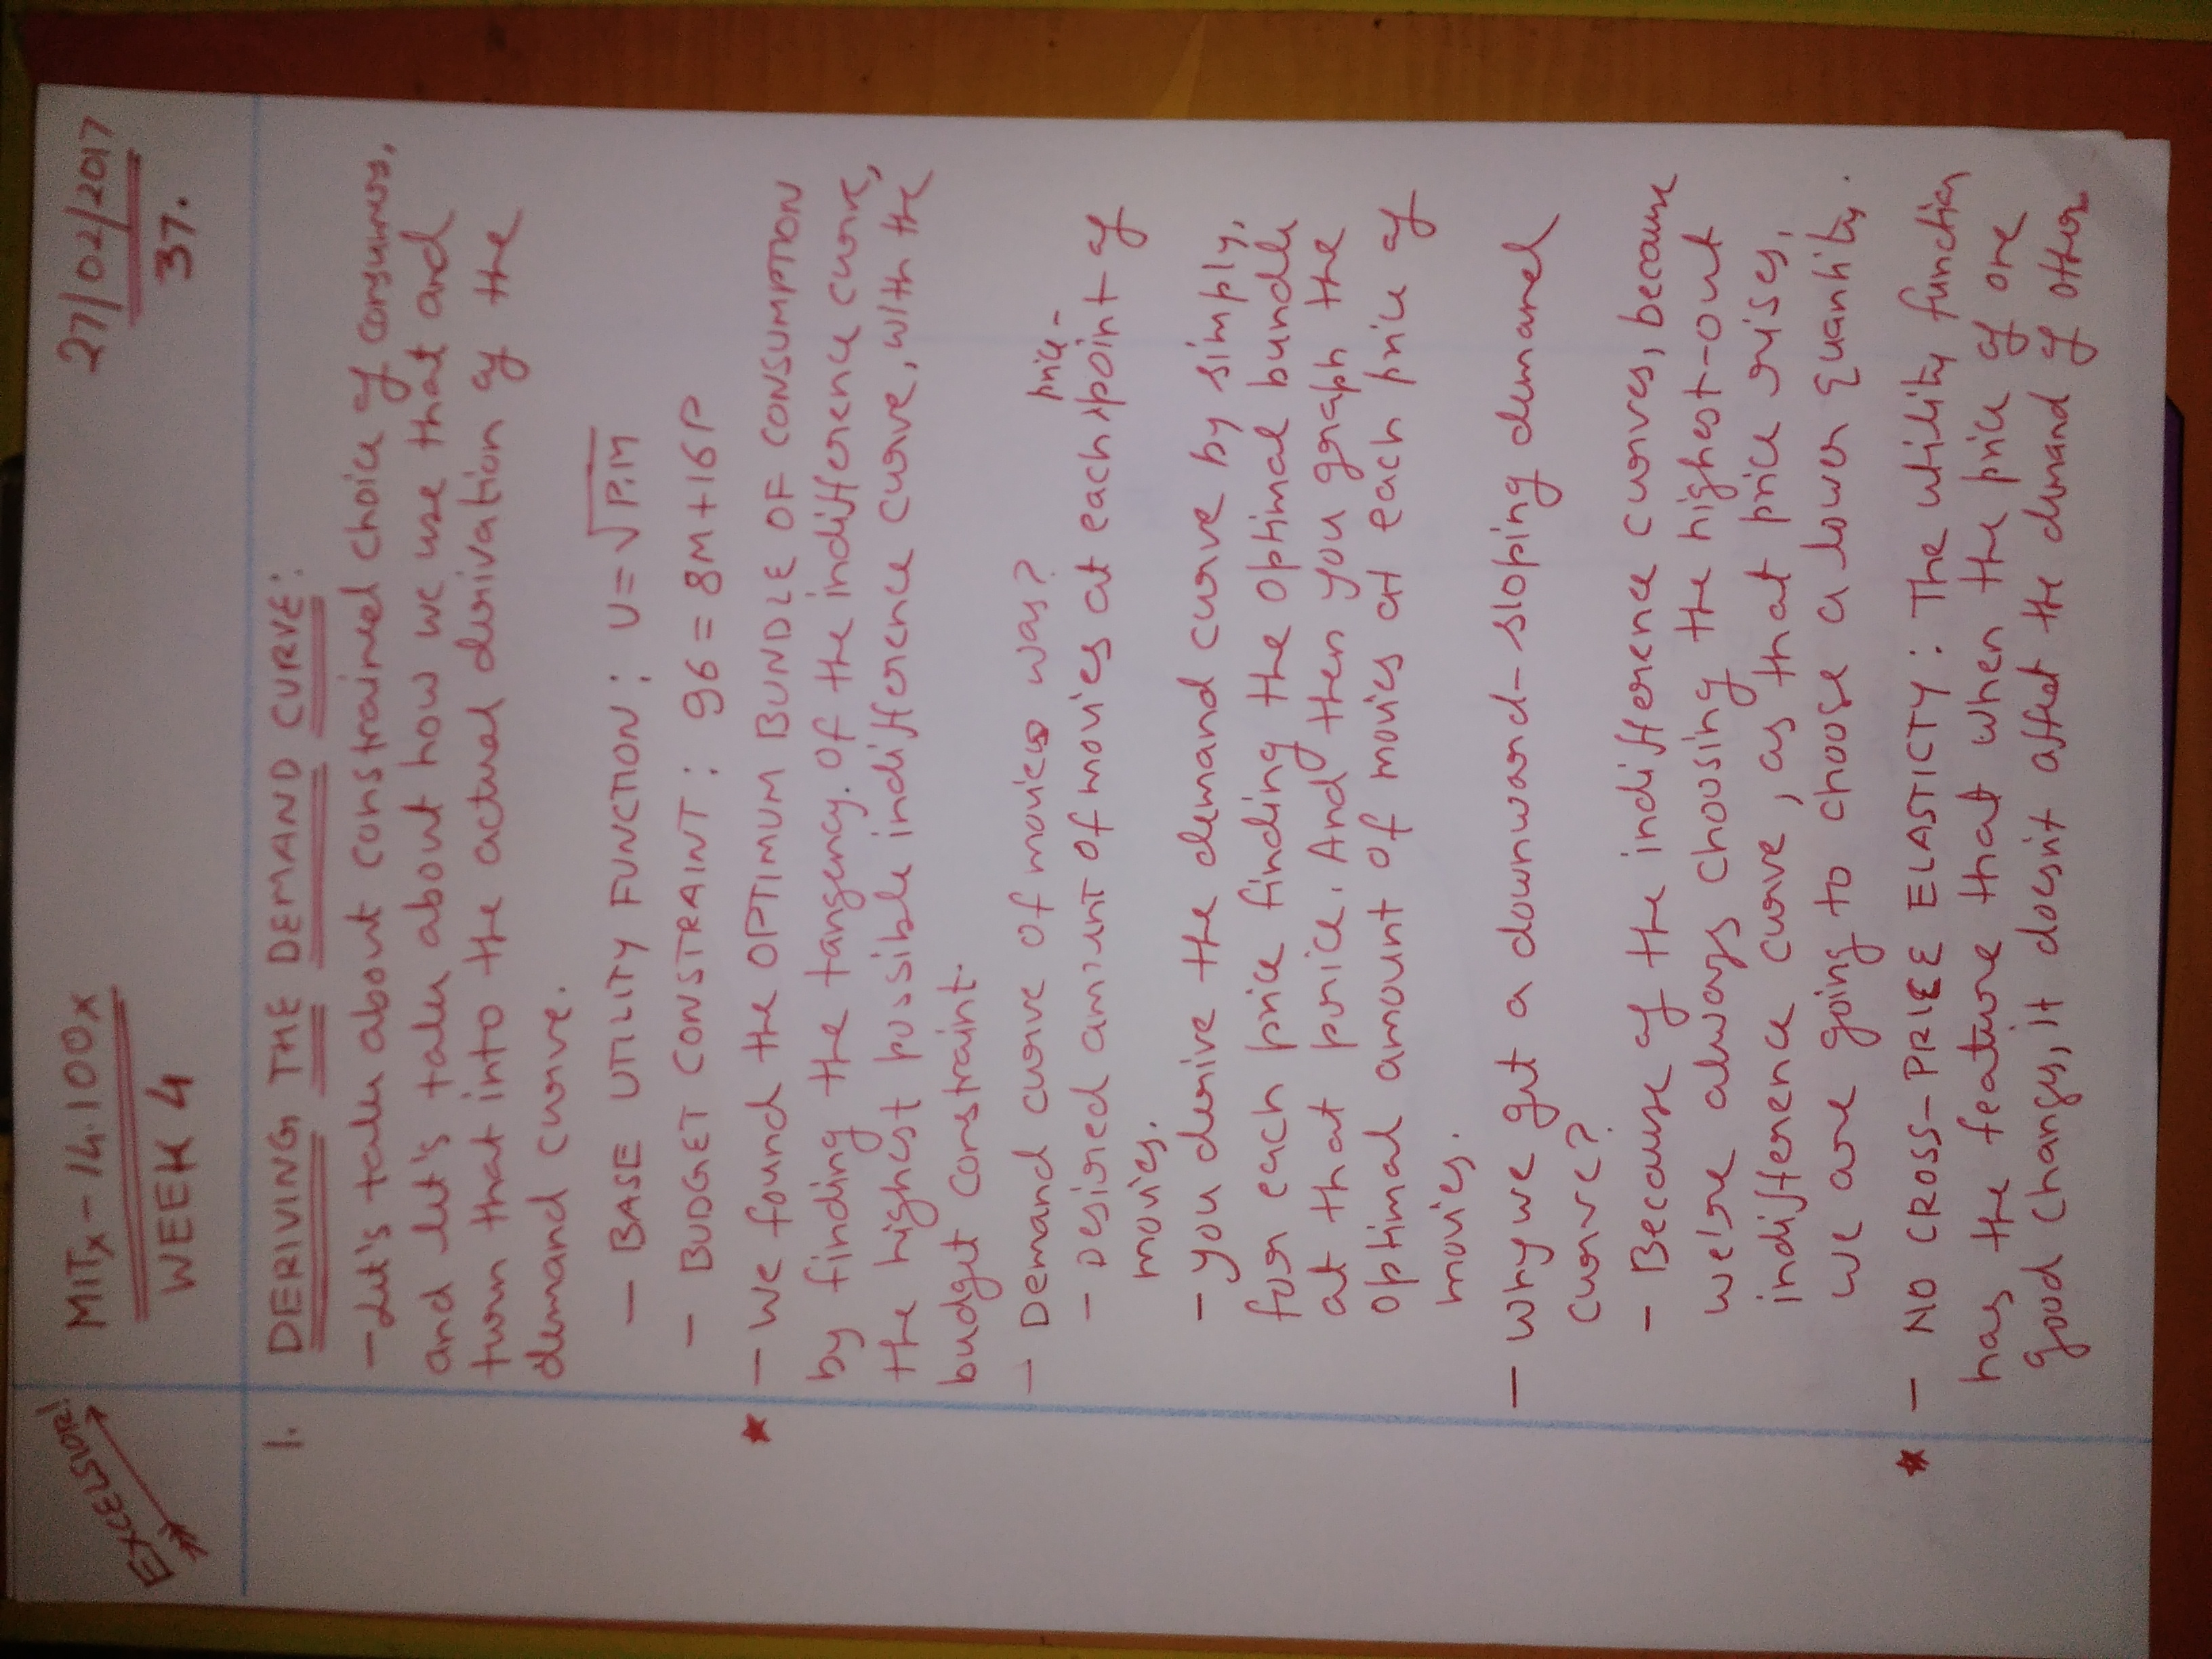 EXCELSIOR!
MITx - 14.100x
27/02/2017
WEEK 4
37.
1. DERIVING THE DEMAND CURVE:
- Let's talk about constrained choice of consumers,
and let's talk about how we use that and
turn that into the actual derivation of the
demand curve.
- BASE UTILITY FUNCTION: U = √P.M
- BUDGET CONSTRAINT: 96 = 8M + 16P
★ - We found the OPTIMUM BUNDLE OF CONSUMPTION
by finding the tangency. Of the indifference curve,
the highest possible indifference curve, with the
budget constraint.
- Demand curve of movies was?
price-
- Desired amount of movies at each point of
movies.
- you derive the demand curve by simply,
for each price finding the optimal bundle
at that price. And then you graph the
optimal amount of movies at each price of
movies.
- Why we get a downward-sloping demand
curve?
- Because of the indifference curves, because
we're always choosing the highest-out
indifference curve, as that price rises,
we are going to choose a lower quantity.
★ - NO CROSS-PRICE ELASTICTY: The utility function
has the feature that when the price of one
good changes, it doesn't affect the demand of other